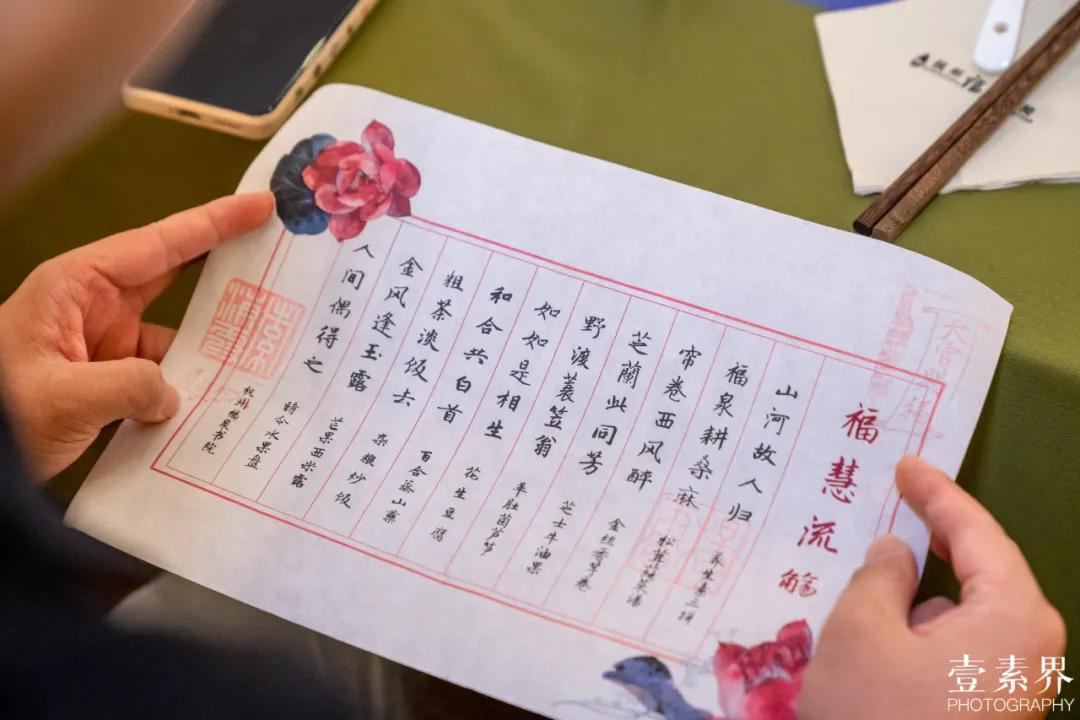 福慧流觞
山河故人归
福泉耕桑麻 养生素三拼
帘卷西风醉 松茸菌菜汤
芝蘭此同芳 金丝香芋卷
野渡蓑笠翁 芝士牛油果
如如是相生 羊肚菌芦笋
和合共白首 花生豆腐
粗茶淡饭去 百合蒸山藥
金风逢玉露 杂粮炒饭
人间偶得之 芒果西米露
時令水果盘
杭州福泉书院
天官
壹素界
PHOTOGRAPHY